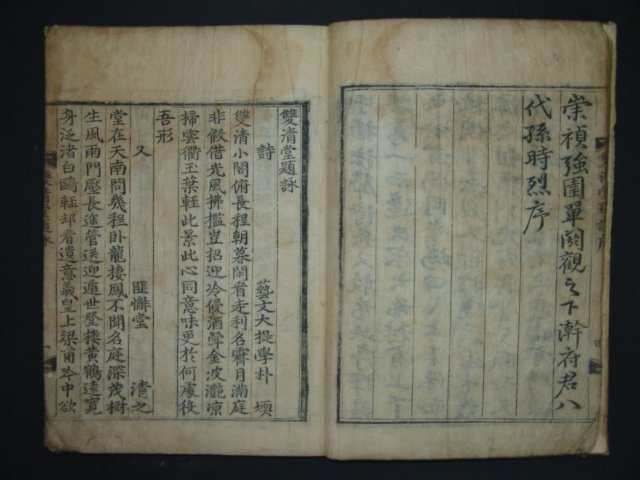 崇禎強圉單閼觀之下澣府君八
代孫時烈序
雙清堂題詠
詩 藝文大提學朴 堧
雙清小閣俯長程朝暮閑看走利名霽月滿庭
非假借光風拂檻豈招迎冷侵酒斝金波灔凉
掃雲衢玉葉輕此景此心同意味更於何處役
吾形
又 匪懈堂 清之
堂在天南問幾程卧龍棲鳳不聞名庭深茂樹
生風雨門壓長途管送迎遁世登樓黃鶴遠寬
身泛渚白鷗輕却看遺意羲皇上梁甫吟中欲